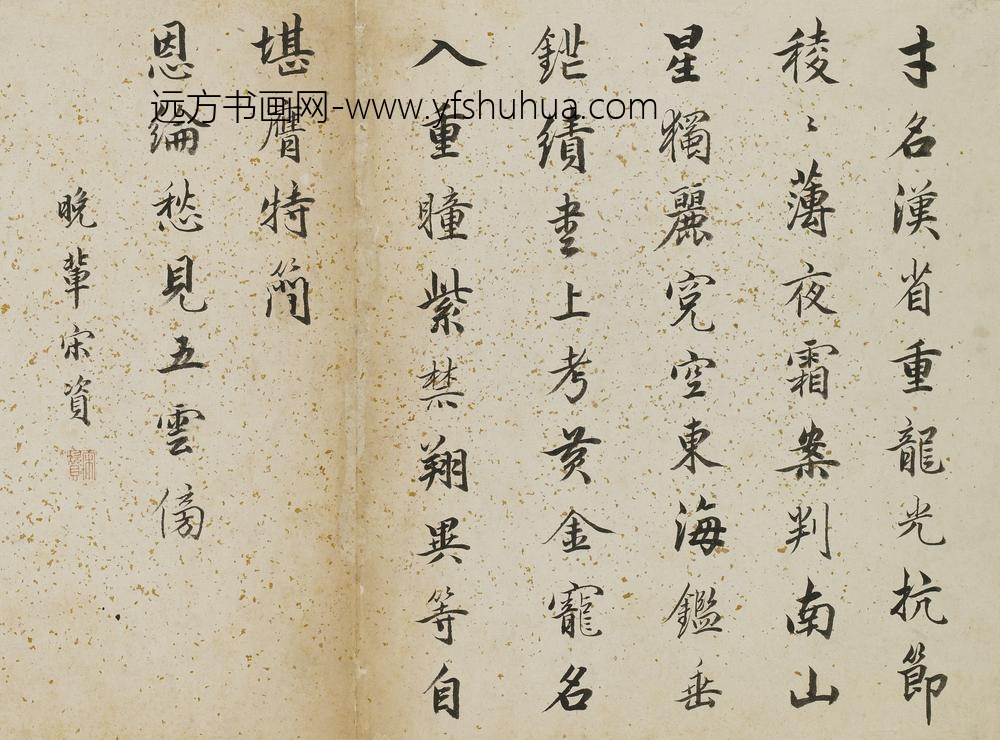 才名漢省重龍光抗節
稜〻薄夜霜案判南山
星獨麗寃空東海鑑垂
鋩績書上考黃金寵名
入重瞳紫禁翔異等自
堪膺特簡
恩綸愁見五雲傍
晚輩宋資
远方书画网-www.yfshuhua.com